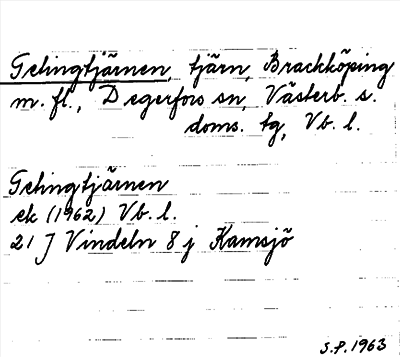 Getingtjärnen, tjärn, Brackköping
m. fl., Degerfors sn, Västerb. s.
doms. tg, Vb. l.
Getingtjärnen
ek (1962) Vb. l.
21 J Vindeln 8 j Kamsjö
S.P. 1963